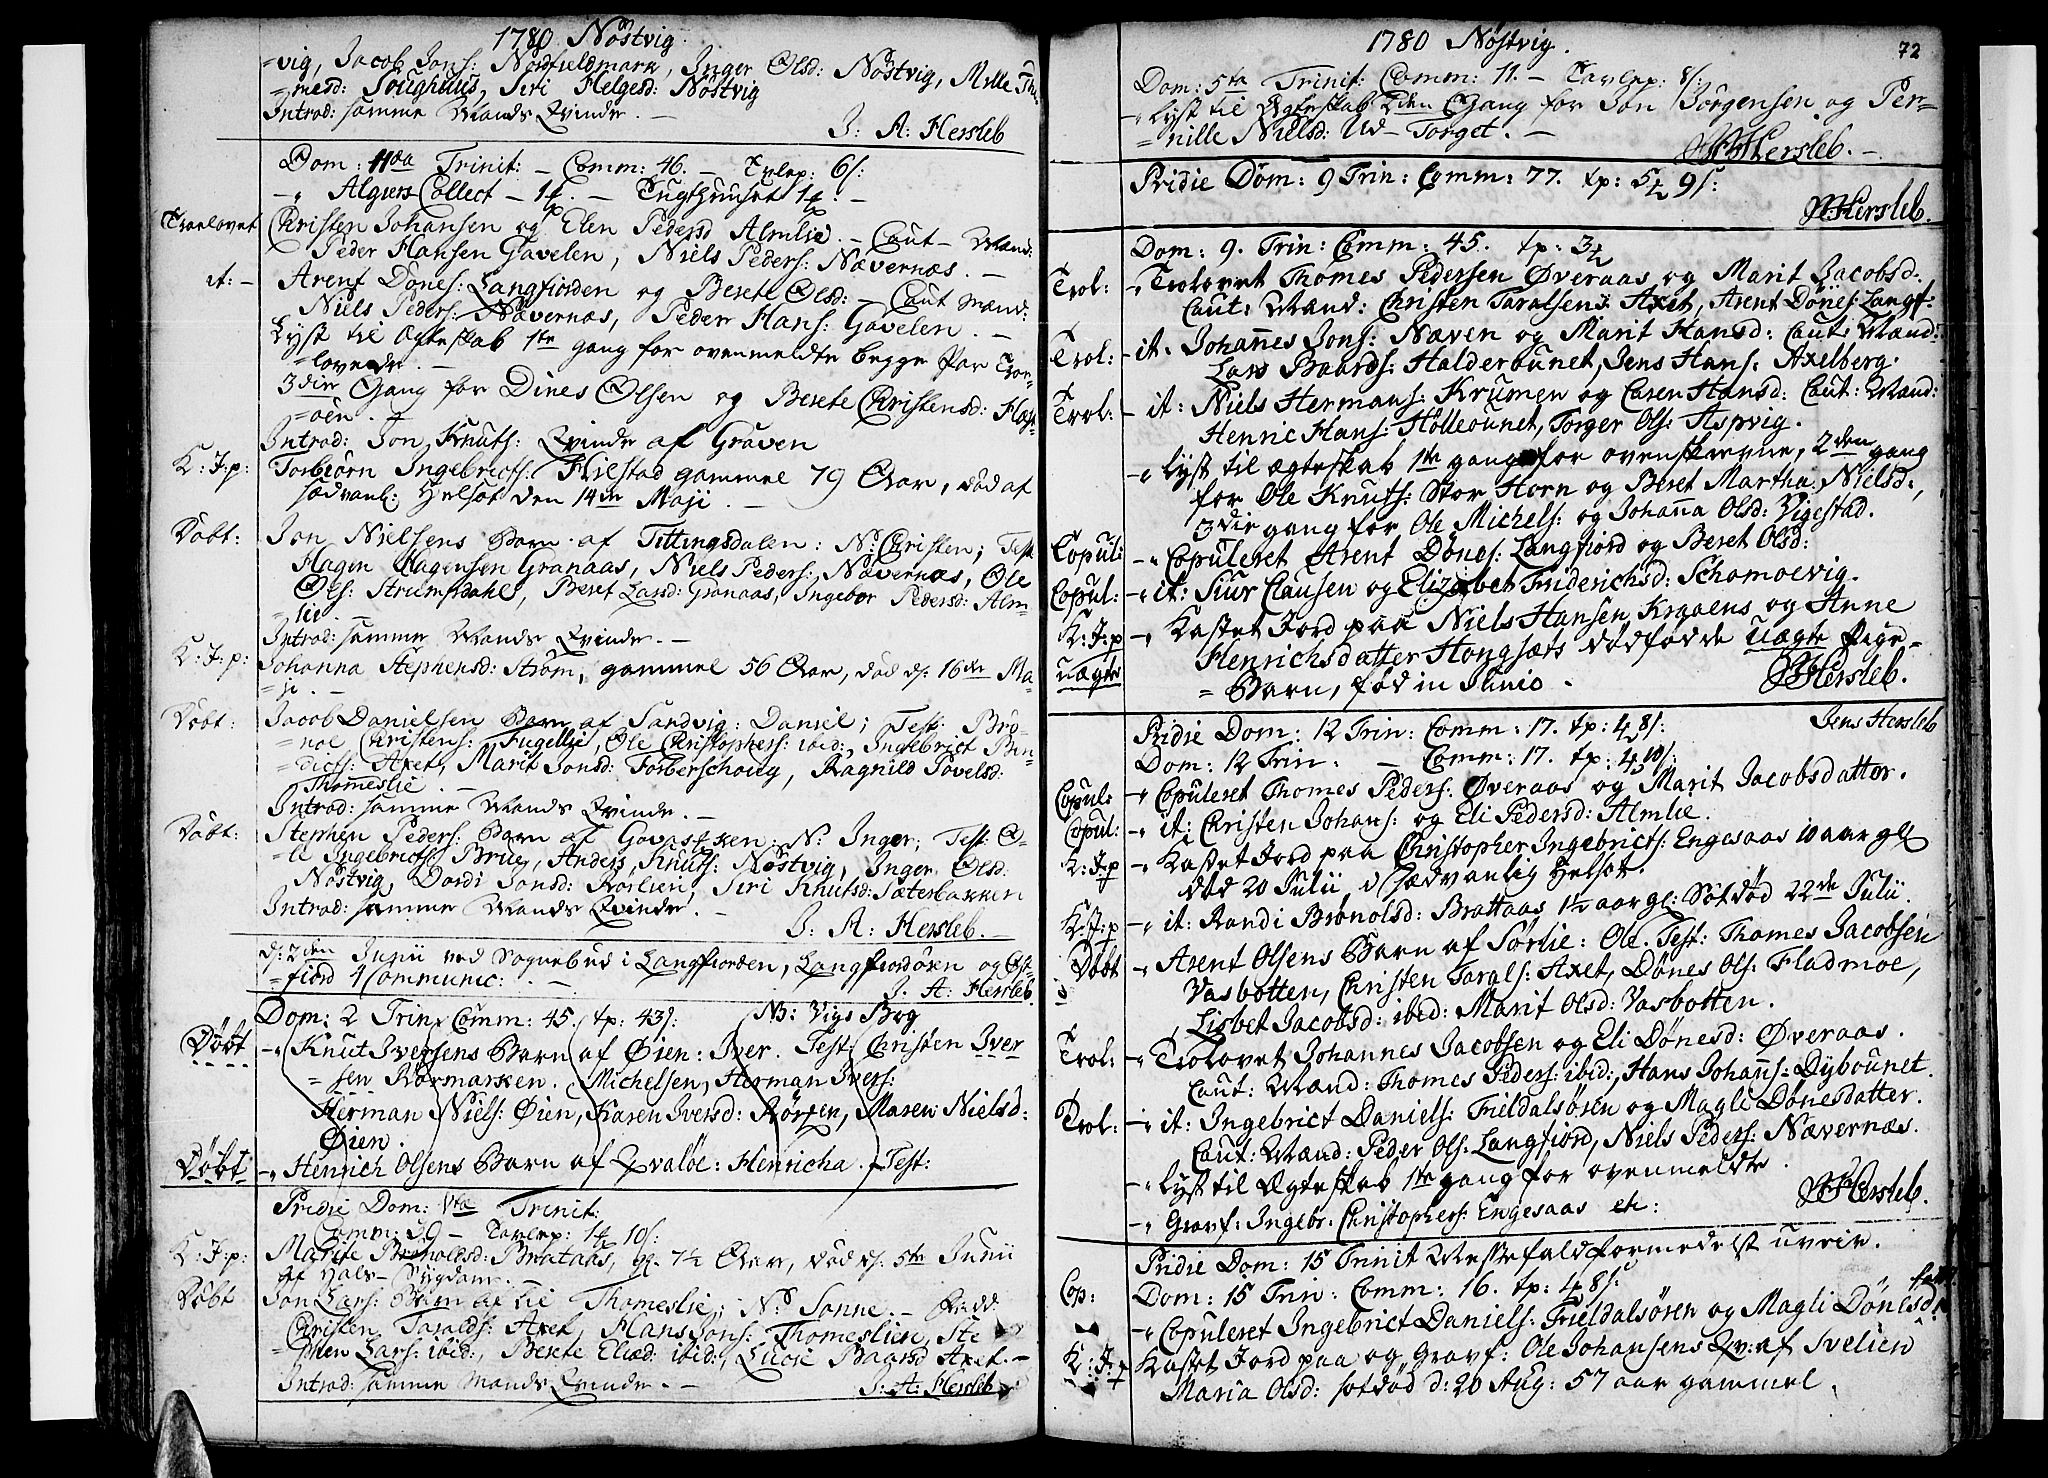 1780 Nöstvig.
=vig, Jacob Jons: Nordfieldmark, Inger Olsd: Nöstvig, Mille Tho-
=mesd: Soughuus, Siri Helgesd: Nöstvig
Introd: samme Mands Qvinde. —
J: A: Hersleb
Dom: Trinit: — Comm: 46. — Tvlep: 6/:
-„ Algiers Collect — 1 — Tugthuuset 1 —
Troelovet Christen Johansen og Elen Pedersd Almlie. — Caut — Mænd
Peder Hansen Gavelen, Niels Peders: Nævernæs. —
it: — Arent Dönes: Langfiorden og Berete Olsd: — Caut Mænd:
Niels Peders: Nævernæs, Peder Hans: Gavelen. —
Lyst til Ægteskab 1ste gang for ovenmeldte begge Par Troe-
=lovede. —
3die Gang for Dines Olsen og Berete Christensd:
=öen. —
Introd: Jon Knuts: Qvinde af Graven
K: J: p: Torbiörn Ingebricts: Hiestad gammel 79 Aar, död af
sædvanl: Helsot den 14de Maji. —
Döbt: Jon Nielsens Barn af Tittingsdalen: N: Christen; Test:
Hagen Hagensen Granaas, Niels Peders: Nævernæs, Ole
Ols: Strumsdahl, Beret Larsd: Granaas, Ingebor Pedersd: Alm-
=lie. —
Introd: samme Mands Qvinde. —
K: J: p: Johanna Stephensd: Ström, gammel 56 Aar, död d: 16de Ma-
=ji. —
Döbt: Jacob Danielsen Barn af Sandvig: Daniel; Test: Brö-
=noe Christens: Fugellie, Ole Christophers: ibid:, Ingebrict Ben-
=dicts: Axet, Marit Jonsd: Forberschoug, Ragnild Povelsd:
Thomeslie. —
Introd: samme Mands Qvinde. —
Döbt: Stephen Peders: Barn af N: Inger, Test: O-
=le Ingebricts: Brue, Anders Knuts: Nöstvig, Inger Olsd:
Nöstvig, Dordi Jonsd: Röslien, Siri Knutsd: Sæterbakken
Introd: samme Mands Qvinde. —
J: A: Hersleb.
d: 2den Junii ved Sognebud i Langfiorden, Langfiordören og
=fiord 4 Communic: —
J: A: Hersleb
Dom: 2 Trin: Comm: 45. tp: 43/: NB: Vigs Byg
Döbt -„ Knut Iversens Barn af Øien: Iver. Test: Christen Iver
=sen Rörmarken. Michelsen, Herman Ivers:
Herman Niels: Øien, Karen Iversd: Rörgen, Maren Nielsd:
Øien.
Döbt -„ Henrich Olsens Barn af Qvalöe: Henricha. Test:
Pridie Dom: Vta Trinit:
Comm: 30 — Tavlep: 1 10/:
K: J: p: Marite Brönoldsd: Brataas, gl. 7½ Aar, död d: 5te Junii
af Hals-Sygdom. —
Döbt Jon Lars: Barn af lie Thomeslie; N: Sonne. — Fadd:
Christen Taralds: Axet, Hans Jons: Thomeslien, Ste
=phen Lars: ibid:, Berete Eliæd: ibid:, Lucie Baarsd Axet. —
Introd: samme Mands Qvinde. —
J: A: Hersleb
1780 Nöstvig.
72
Dom: 5ta Trinit: Comm: 11. — Tavlep: 8/:
-„ Lyst til Ægteskab 2den Gang for Jon Jörgensen og Per-
=nille Nielsd: Ud-Torget. —
Hersleb. —
Pridie Dom: 9 Trin: Comm: 77. tp: 5 9/:
Hersleb.
Dom: 9. Trin: Comm: 45. tp: 3
Trol: -„ Trolovet Thomes Pedersen Øveraas og Marit Jacobsd:
Caut: Mænd: Christen Taralsens: Axet, Arent Dönes: Langf:
Trol: - it: Johannes Jons: Næven og Marit Hansd: Caut: Mænd:
Lars Baards: Halderounet, Jens Hans: Axelberg.
Trol: - it: Niels Hermans: Krumen og Caren Hansd: Caut: Mænd:
Henric Hans: Hölleounet, Torger Ols: Aspvig.
-„ Lyst til ægteskab 1ste gang for ovenskrevne, 2den gang
for Ole Knuts: Stor Horn og Beret Martha Nielsd:,
3die gang for Ole Michels: og Johanna Olsd: Vigestad.
Copul: -„ Copuleret Arent Dönes: Langfiord og Beret Olsd:
Copul: -„ it: Siur Clausen og Elizabet Friderichsd: Schomoevig.
K: J: p -„ Kastet Jord paa Niels Hansen Krgöens og Anne
uægte Henrichsdatter Hongsæts dödfödde uægte Pige-
=Barn, föd in Junio.
Hersleb.
Pridie Dom: 12 Trin: Comm: 17. tp: 4 8/: Jens Hersleb
Dom: 12 Trin: — Comm: 17. tp: 4 10/:
Copul: -„ Copuleret Thomes Peders: Øveraas og Marit Jacobsdatter.
Copul: -„ it: Christen Johans: og Eli Pedersd: Almlie.
K: J: p -„ Kastet Jord paa Christopher Ingebricts: Engesaas 10 aar gl
död 20 Julii af sædvanlig Helsot.
K: J: p -„ it: Randi Brönolsd: Brattaas 1½ aar gl: Sotdöd 22de Julii.
Döbt -„ Arent Olsens Barn af Sörlie: Ole. Test: Thomes Jacobsen
Vasbotten, Christen Tarals: Axet, Dönes Ols: Fladmoe,
Lisbet Jacobsd: ibid: Marit Olsd: Vasbotten.
Trol: -„ Trolovet Johannes Jacobsen og Eli Dönesd: Øveraas.
Caut: Mænd: Thomes Peders: ibid:, Hans Johans: Dybounet.
Trol: -„ it: Ingebrict Daniels: Frieldalsören og Magli Dönesdatter.
Caut: Mænd: Peder Ols: Langfiord, Niels Peders: Nævernæs.
-„ Lyst til Ægteskab 1ste gang for ovenmeldte.
Hersleb.
-„ Gravf: Ingebr: Christophers: Engesaas etc:
Pridie Dom: 15 Trinit Messefald formedelst uveir.
Dom: 15 Trin: Comm: 16. tp: 4 8/:
Cop: -„ Copuleret Ingebrict Daniels: Frieldalsören og Magli Dönesd:
K: J: p Kastet Jord paa og Gravf: Ole Johansens Qv: af Svelien
Maria Olsd: sotdöd d: 20 Aug: 57 aar gammel.